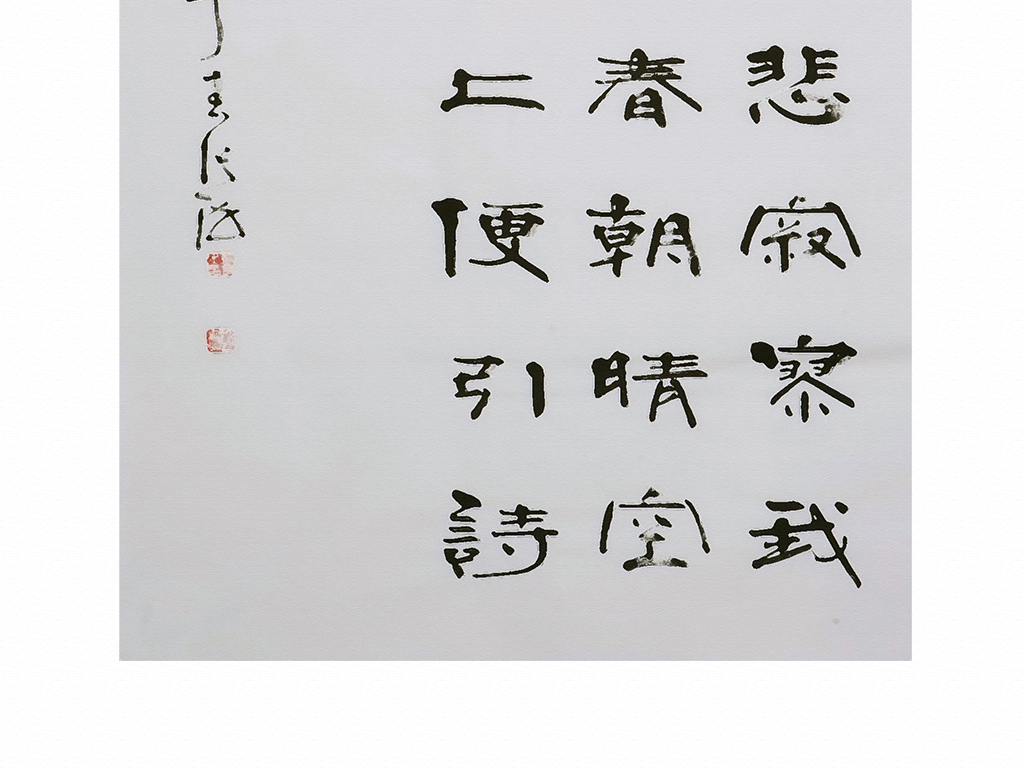 悲寂寥我
春朝晴空
上便引詩
張海